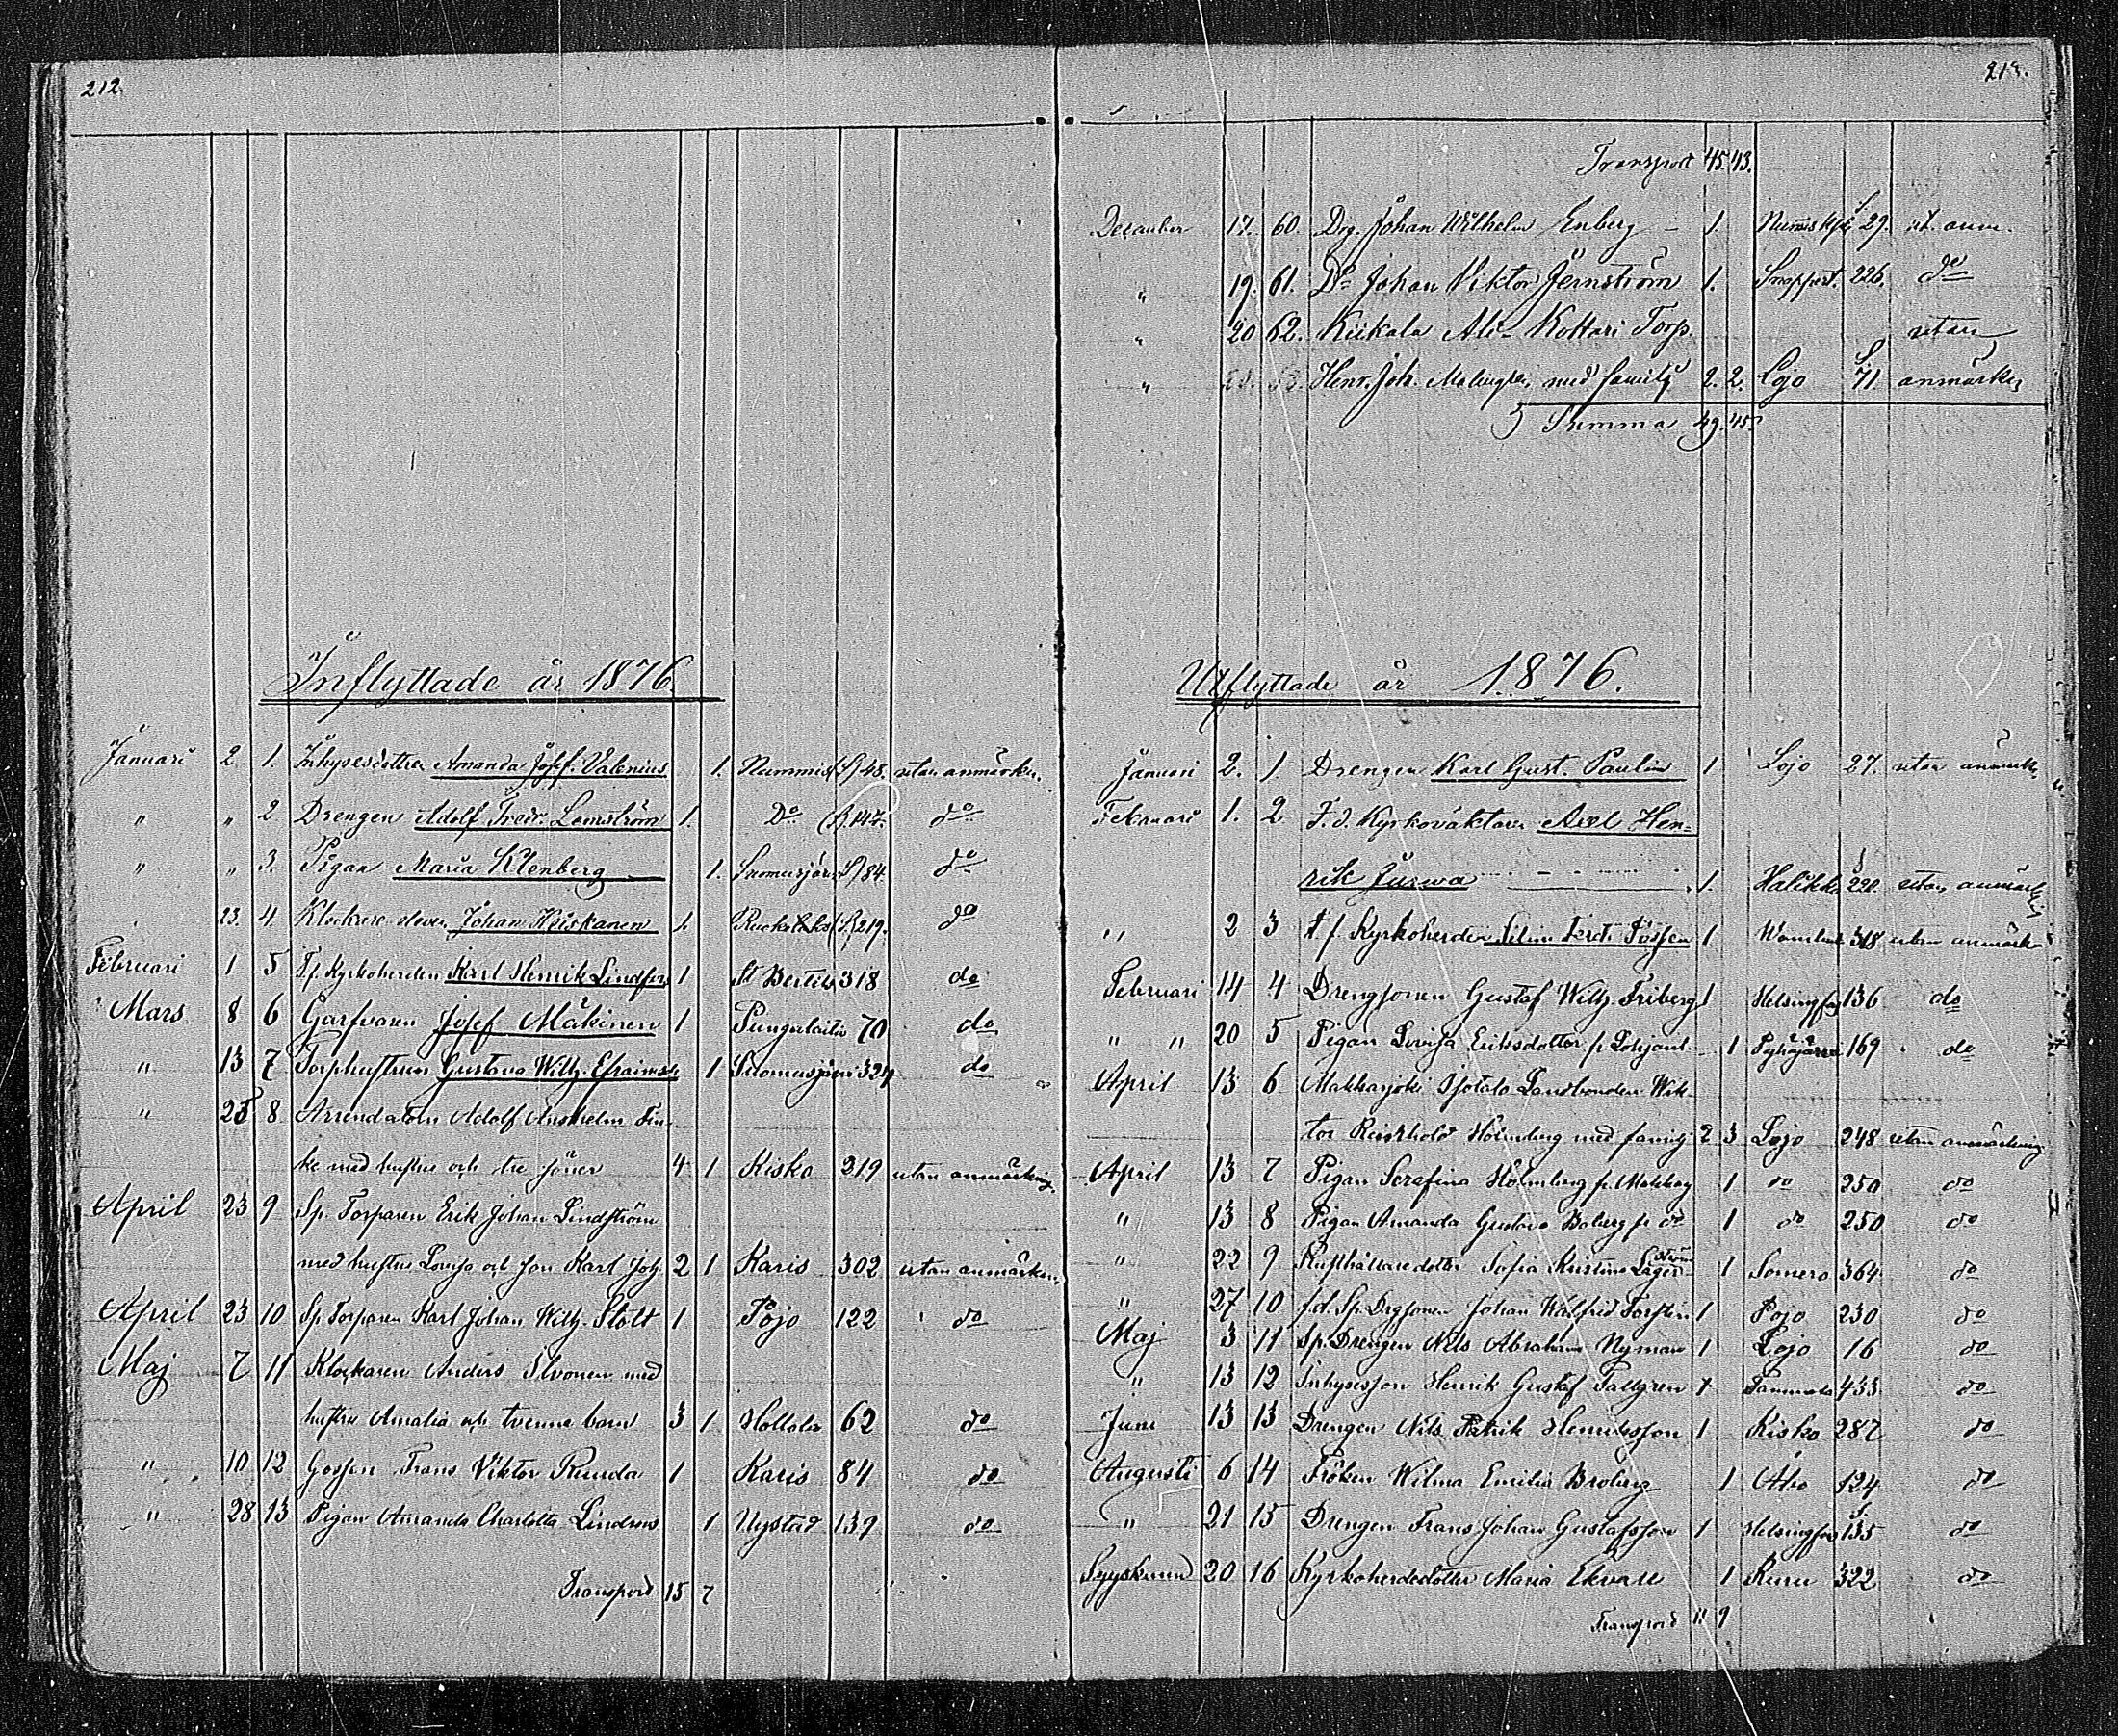 212.
Inflyttade år 1876.
Januari 2 1. Inhysesdottren Amanda Josef. Valenius 1. Nummis 48. utan anmärkn.
" " 2 Drengen Adolf Fredr. Lemström 1. Do 147. do
" " 3. Pigan Maria Klenberg 1. Suomusjärvi 84. do
23. 4. Klockare eleven Johan Heiskanen 1. 219. do
Februari 1 5 T.f. Kyrkoherden Karl Henrik Lindfors 1 St Bertils 318 do
Mars 8 6 Garfvaren Josef Mäkinen 1 Pungalaitio 70 do
" 13 7 Torphustrun Gustava Wilh. Efraimsd. 1 Suomusjärvi 324 do
" 25 8 Arrendatorn Adolf Anshelm Fin-
ke med hustru och tre söner 4 1 Kisko 219 utan anmärkning.
April 23 9 Sp. Torparen Erik Johan Lindström
med hustru Lovisa och son Karl Joh. 2 1 Karis 302 utan anmärkn.
April 23 10 Sp. Torparen Karl Johan Wilh. Stolt 1 Pojo 122 do
Maj 7 11 Klockaren Anders Ilvonen med
hustru Amalia och tvenne barn 3 1 Hollola 62 do
" 10 12 Gossen Frans Viktor Runda 1 Karis 84 do
" 28 13 Pigan Amanda Charlotta Lindroos 1 Nystad 139 do
Transport 15 7
213.
Transport 45. 43.
December 17. 60. Drg. Johan Wilhelm Enberg 1. Nummis Kpl 29. ut. anm.
" 19. 61. Do Johan Viktor Jernström 1. 226. do
" 20 62. Kiikala Ali-Kottari Torp. utan
" Henr. Joh. Malmgren med familj 2. 2. Lojo 71 anmärkn
Summa 49. 45.
Utflyttade år 1876.
Januari 2. 1. Drengen Karl Gust. Paulin 1 Lojo 27. utan anmärk.
Februari 1. 2 F.d. Kyrkoväktaren Axel Hen-
rik Juswa 1. Halikko 220 utan anmärkn
" 2 3 t.f. Kyrkoherden 1 318 utan anmärkn
Februari 14 4 Drengsonen Gustaf Wilh. Friberg 1 Helsingfors 136 do
" " 20 5 Pigan Lovisa Eriksdotter fr. 1 Pyhäjärvi 169 do
April 13 6 Makkarjoki Ojotalo Landbonden Wik-
tor Reinhold Holmberg med familj 2 3 Lojo 248 utan anmärkning
April 13 7 Pigan Serafina Holmberg fr. Makkarj 1 do 250 do
" 13 8 Pigan Amanda Gustava Boberg fr do 1 do 250 do
" 22 9 Rusthållaredotter Sofia Kristina Lagerström 1 Somero 364 do
" 27 10 f.d. Sp. Drgsonen Johan Walfrid Forsten 1 Pojo 230 do
Maj 3 11 Sp. Drengen Nils Abraham Nyman 1 Lojo 16 do
" 13 12 Inhysesson Henrik Gustaf Tallgren 1 Tammela 433 do
Juni 13 13 Drengen Nils Patrik Henriksson 1 Kisko 287 do
Augusti 6 14 Fröken Wilma Emilia Broberg 1 Åbo 124 do
" 21 15 Drengen Frans Johan Gustafsson 1 Helsingfors 135 do
Syyskuun 20 16 Kyrkoherdedotter Maria Ekvall 1 Kuru 322 do
Transport 11 9